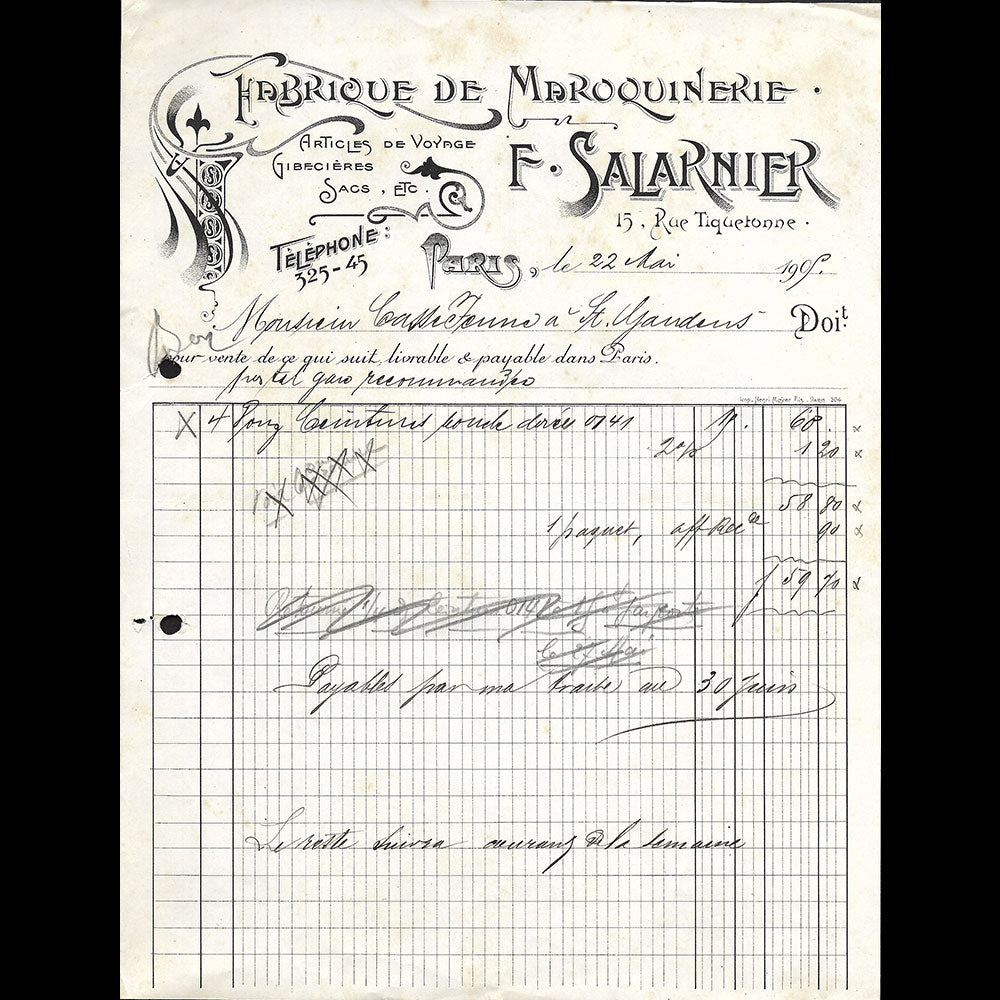 FABRIQUE DE MAROQUINERIE.
ARTICLES DE VOYAGE
GIBECIÈRES
SACS, ETC.
F. SALARNIER
15, Rue Tiquetonne.
TÉLÉPHONE:
325-45
PARIS, le 22 Mai 190
Monsieur à St. Gaudens Doit
pour vente de ce qui suit, livrable & payable dans Paris.
postal gare
Imp. Henri Moyer Fils, Paris 304
X 4 Ceintures boucle dorée 0741 60
2% 1 20
58 80
1 paquet, aff 90
f 59 70
le 27 Mai
Payables par ma traite au 30 Juin
Le reste suivra courant de la semaine